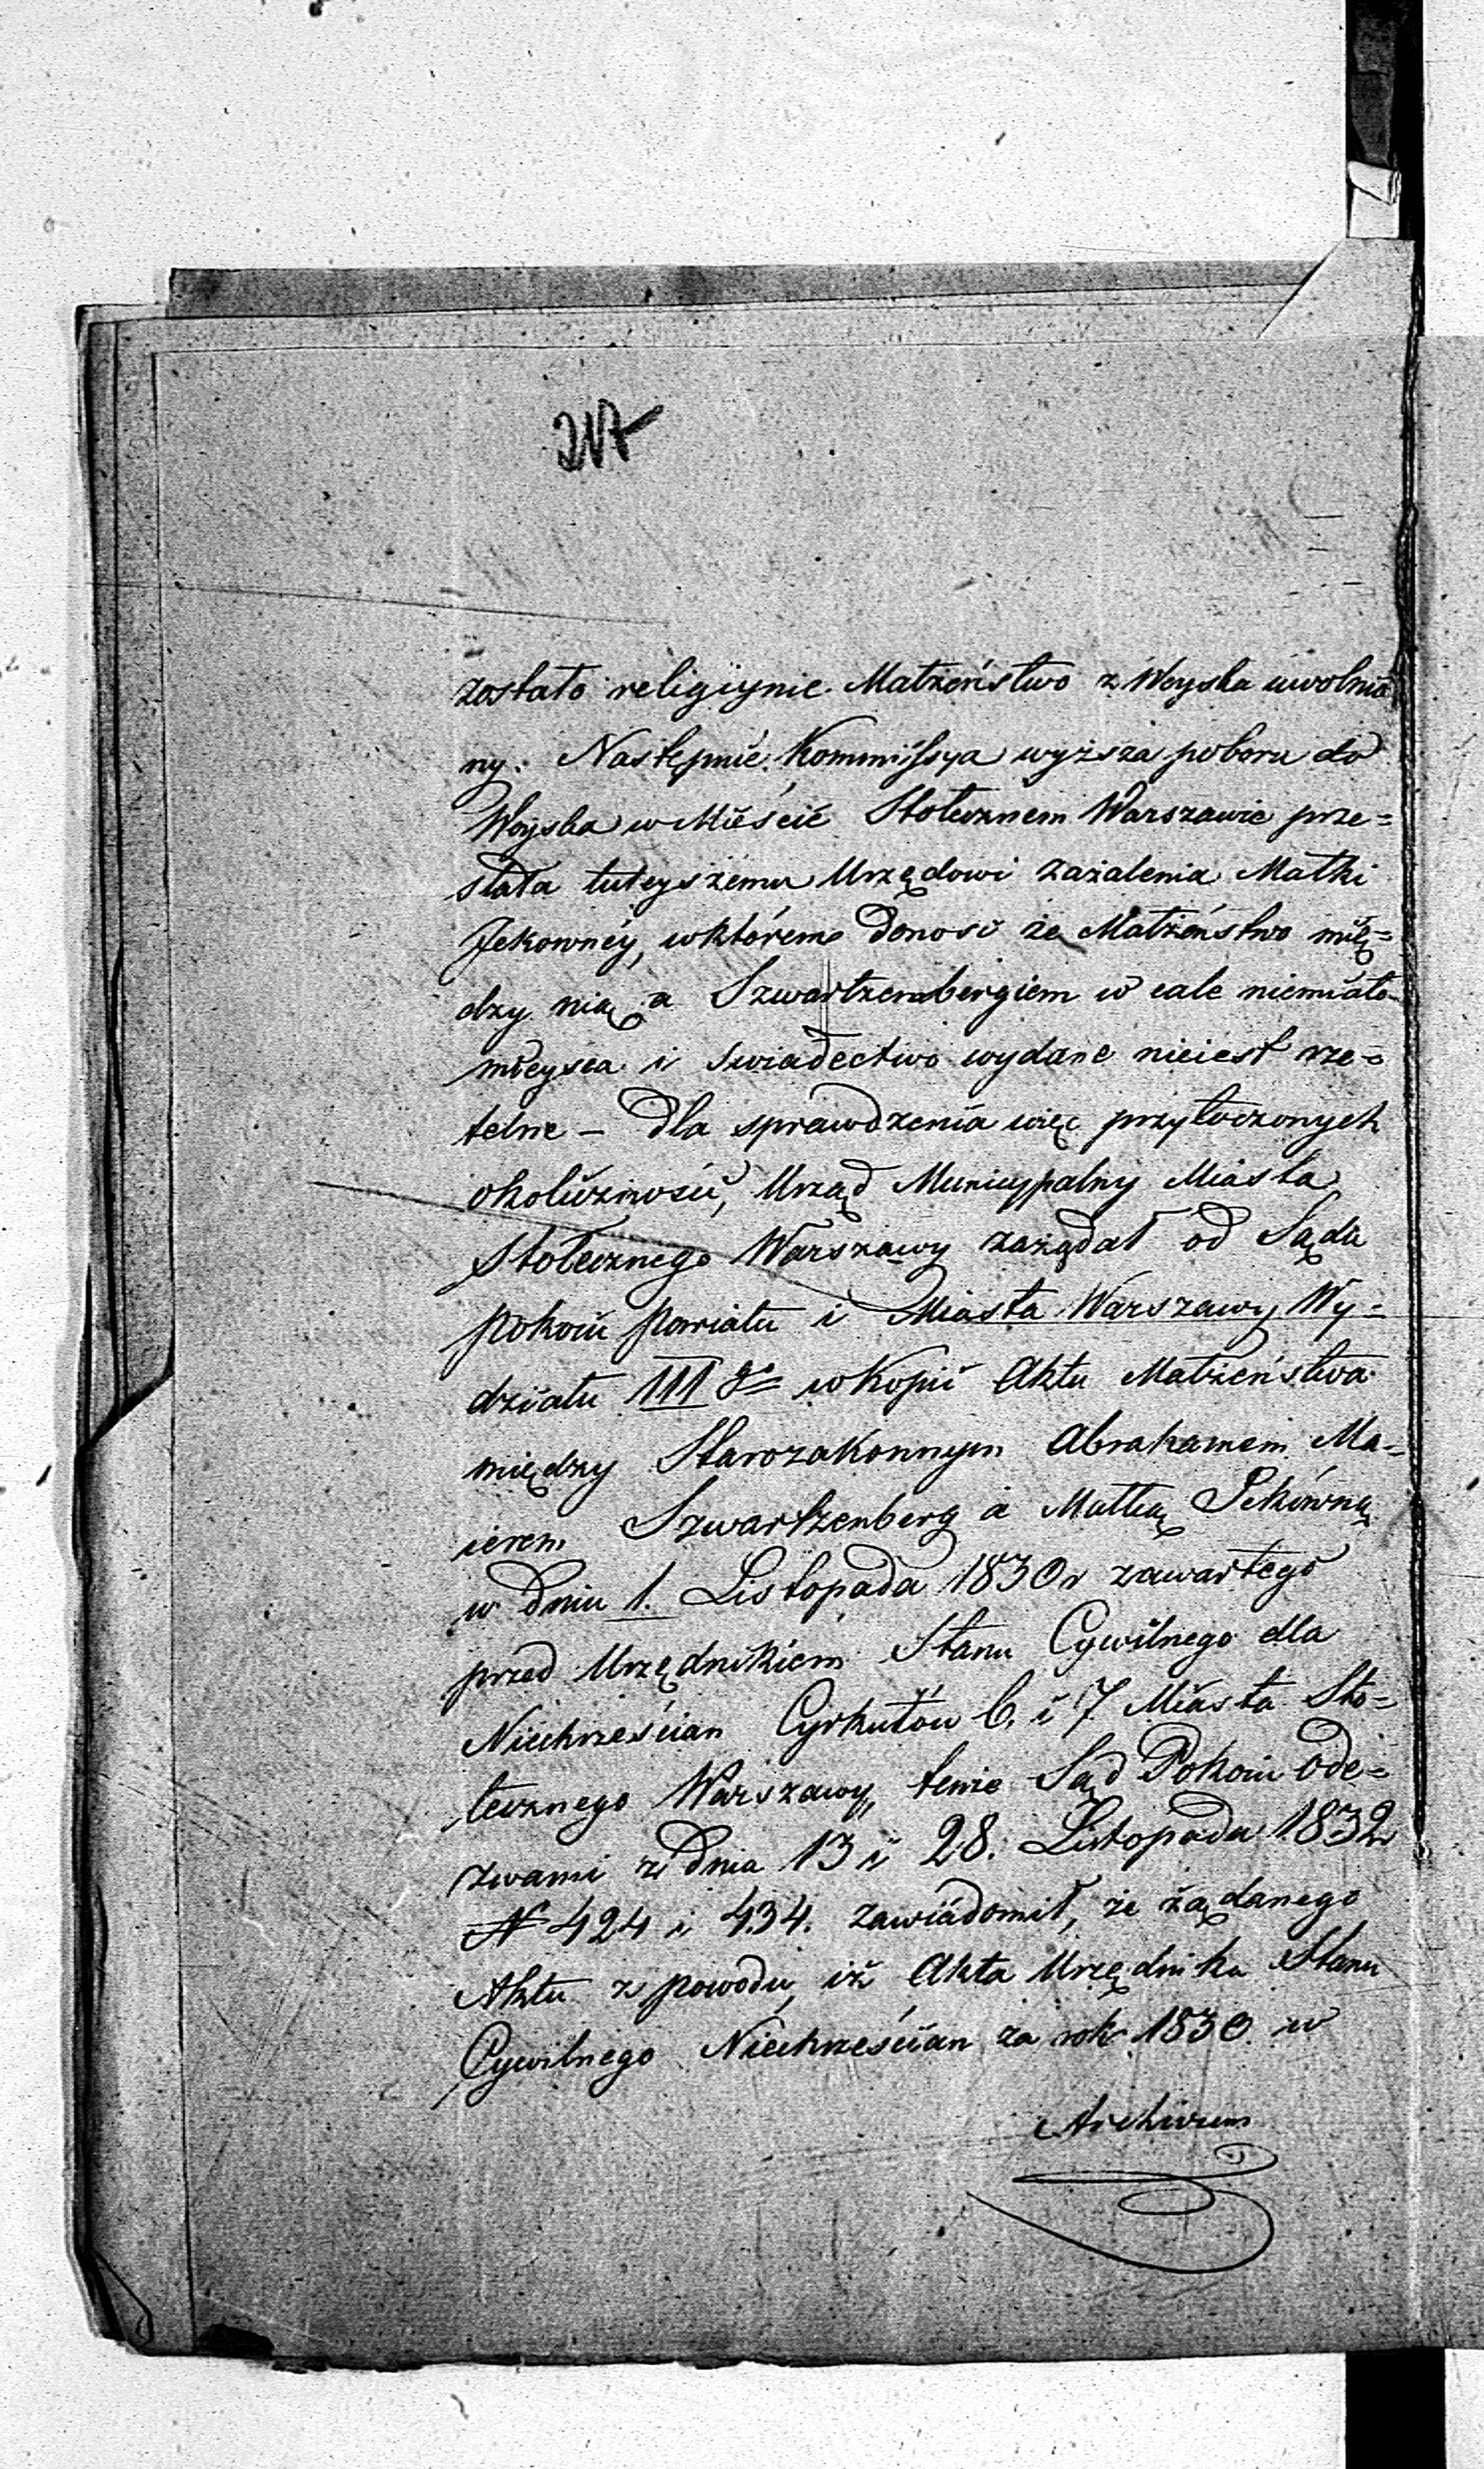 217
zostało religiynie Małżeństwo z Woyska uwolnio
ny. Następnie Kommissya wyższa poboru do
Woyska w Mieście Stołecznem Warszawie prze=
słała tuteyszemu Urzędowi zażalenia Matki
Jekowney, w którem donosi że Małżeństwo mię=
dzy nią a Szwartzenbergiem w cale niemiało
mieysca i swiadectwo wydane nieiest rze=
telne – dla sprawdzenia więc przytoczonych
okoliczności, Urząd Municypalny Miasta
Stołecznego Warszawy zażądał od Sądu
pokoiu Powiatu i Miasta Warszawy Wy=
działu III go w kopii Aktu Małżeństwa
między Starozakonnym Abrahamem Ma=
ierem Szwartzenberg a Małką Jekówną
w dniu 1. Listopada 1830 r zawartego
przed Urzędnikiem Stanu Cywilnego dla
Niechrześcian Cyrkułów 6. i 7 Miasta Sto=
łecznego Warszawy, tenże Sąd Pokoiu Ode=
zwami z dnia 13 i 28. Listopada 1832 r
N 424 i 434. zawiadomił, że żądanego
Aktu z powodu, iż Akta Urzędnika Stanu
Cywilnego Niechrześcian za rok 1830. w
Archivum